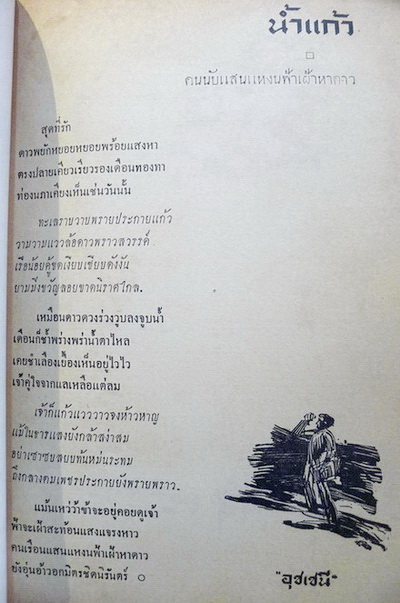 น้ำแก้ว
คนนับแสนแหงนฟ้าเฝ้าหาดาว
สุดที่รัก
ดาวพยักหยอยหยอยพร้อยแสงหา
ตรงปลายเคียวเรียวรองเดือนทองทา
ท่องนภาเคียงเห็นเช่นวันนั้น
ทะเลราบวาบพรายประกายแก้ว
วามวามแวววล้อดาวพราวสวรรค์
เรือน้อยคู้ขดเงียบเชียบดังงัน
ยามมิ่งขวัญลอยขาดนิราศไกล.
เหมือนดาวดวงร่วงวูบลงจูบน้ำ
เดือนก็ช้ำพร่างพร่าน้ำตาไหล
เคยชำเลืองเยื้องเห็นอยู่ไวไว
เจ้าคู่ใจจากแลเหลือแต่ลม
เจ้าก็แก้วแวววาวจงห้าวหาญ
แม้ในธารแสงยังกล้าสง่าสม
อย่าเซาซบสยบทันหม่นระทม
ถึงกลางตมเพชรประกายยังพรายพราว.
แม้นเหว่ว้าข้าจะอยู่คอยดูเจ้า
ฟ้าจะเฝ้าสะท้อนแสงแจรงหาว
คนเรือนแสนแหงนฟ้าเฝ้าหาดาว
ยังอุ่นอ้าวอกมิตรชิดนิรันดร์
"อุชเชนี"